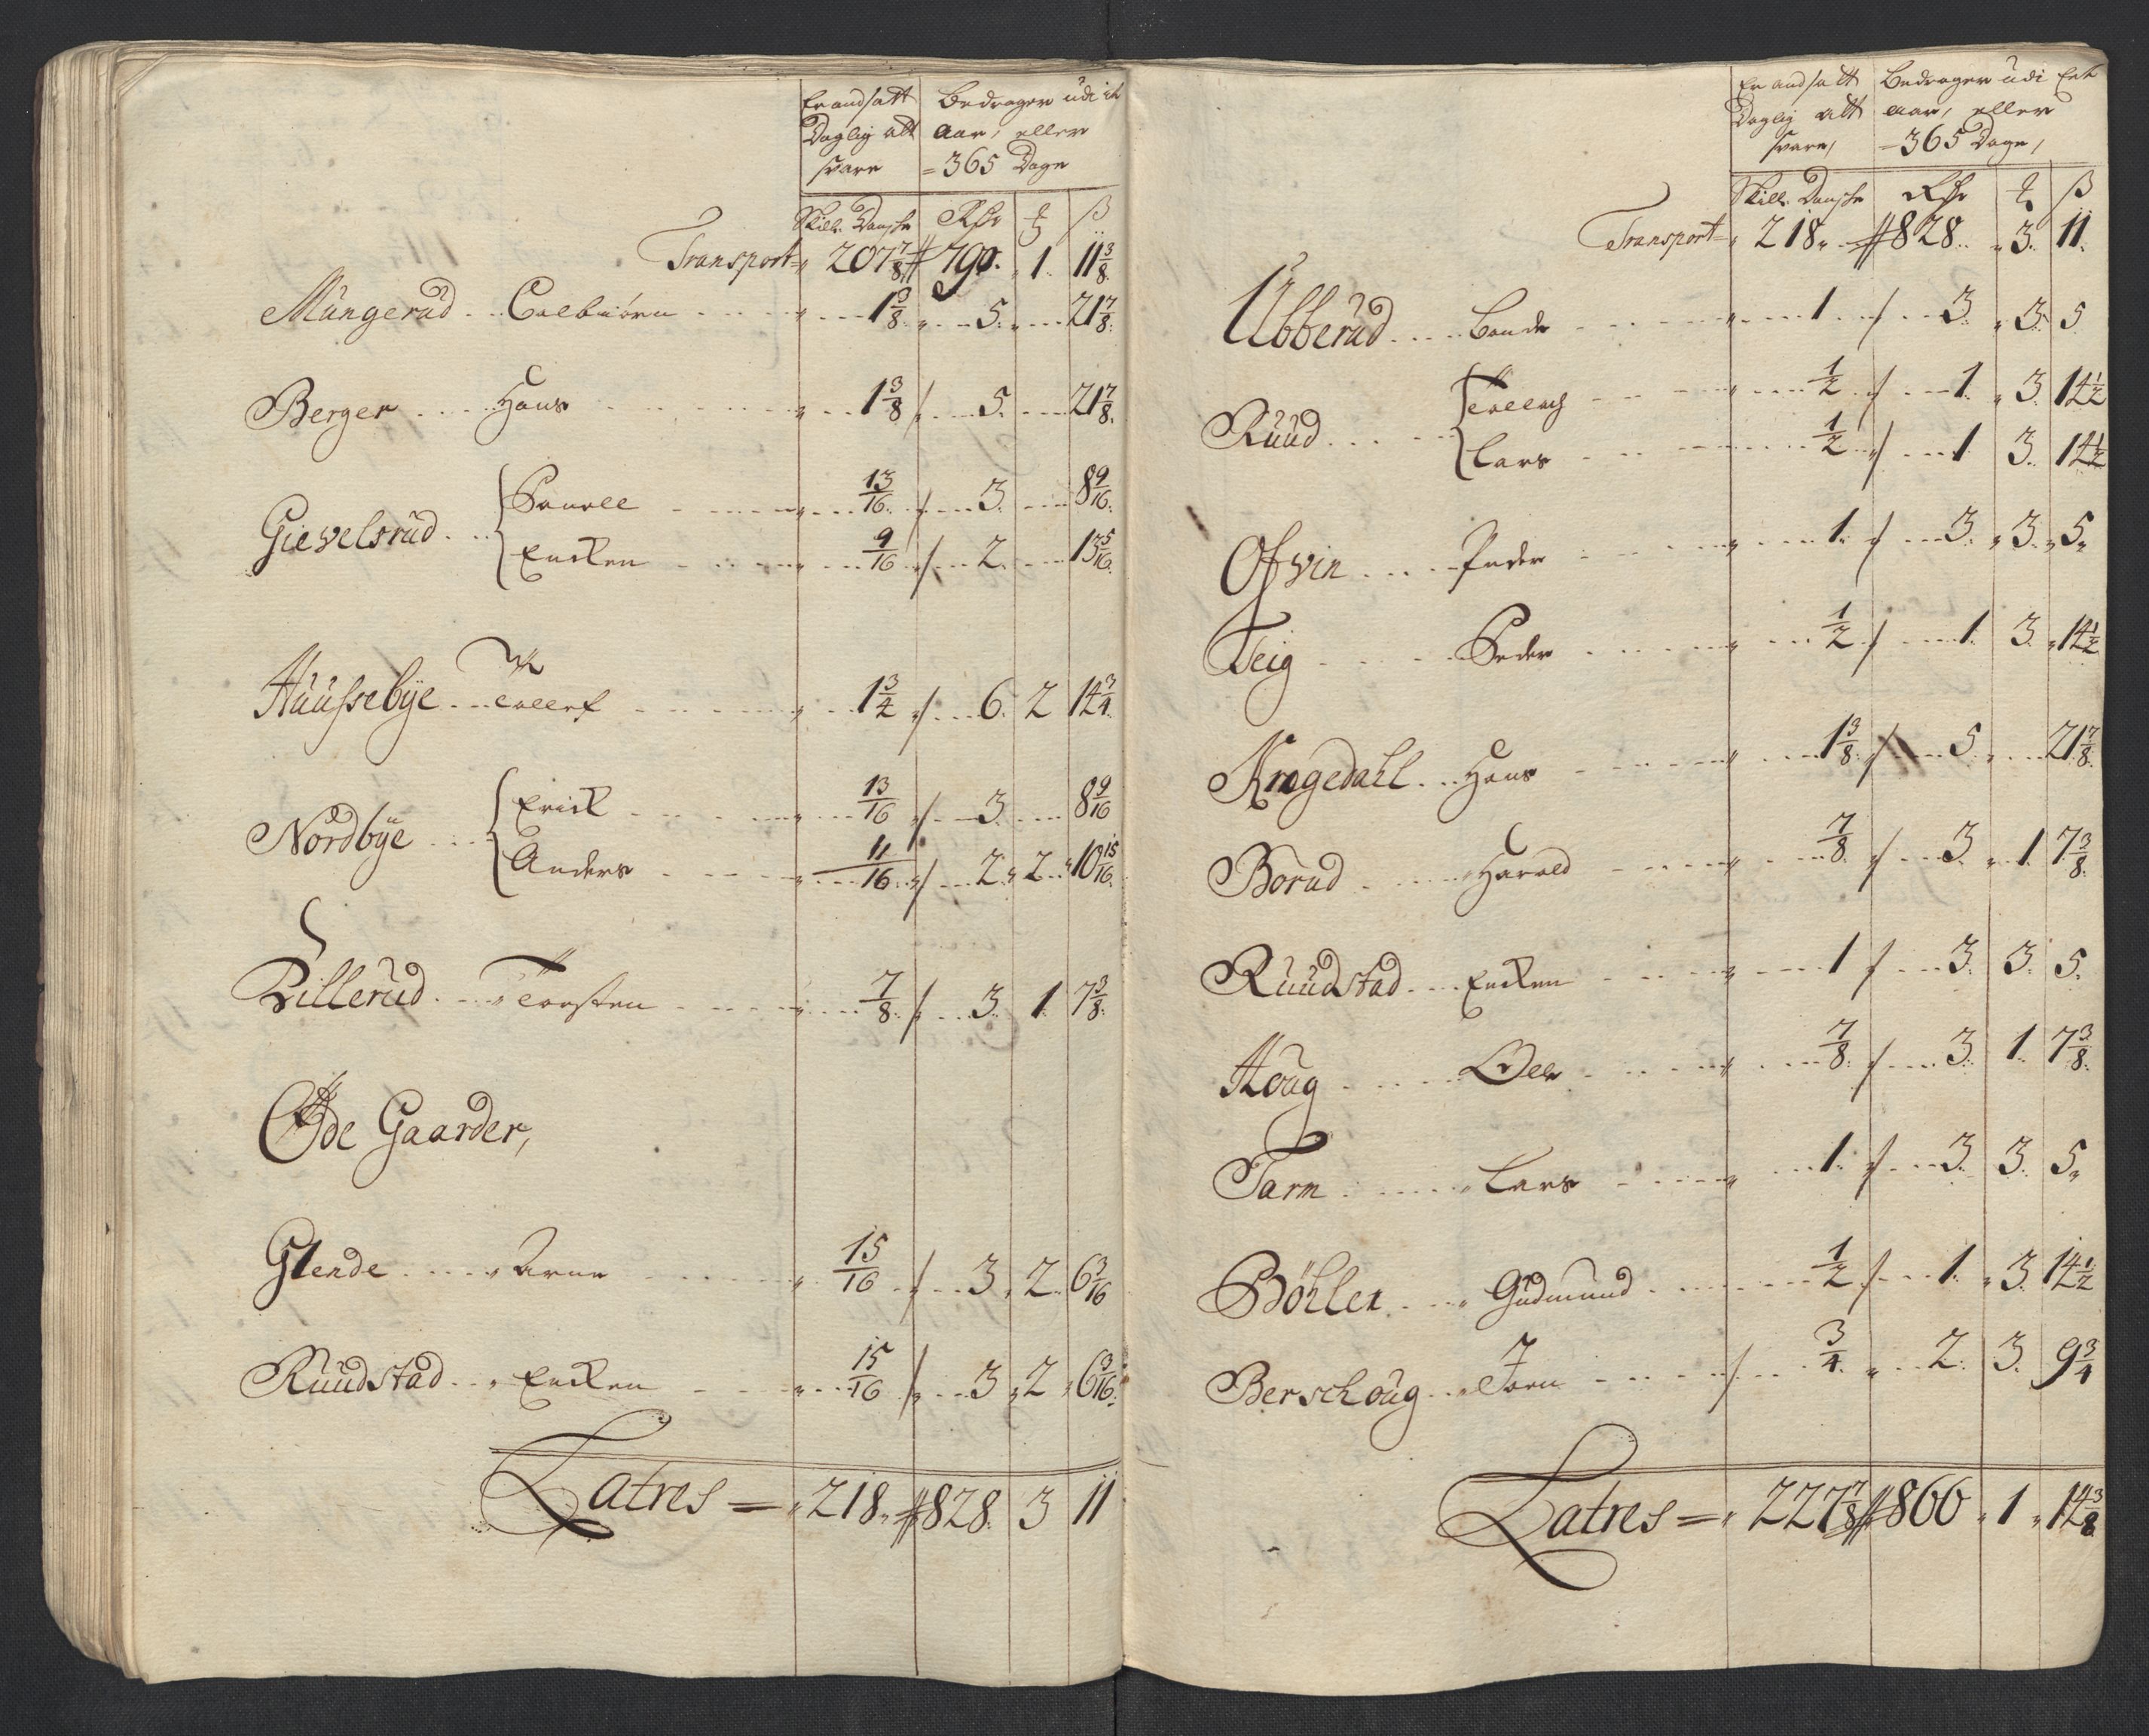 Er andsatt Bedrager udi it
Daglig att Aar, eller
svare = 365 Dage
Skill. Danske Rdr ß
Transport 207 7/8 790. 1 11 3/8
Mungerud Colbiörn 1 3/8 5. 21 7/8
Berger Hans 1 3/8 5. 21 7/8
Gievelsrud Povell 13/16 3. 8 9/16
Encken 9/16 2. 13 5/16
Huussebÿe Tollef 1 3/4 6. 2 14 3/4
Nordbÿe Erick 13/16 3 8 9/16
Anders 11/16 2. 2 10 15/16
Lillerud Torsten 7/8 3. 1 7 3/8
Øde Gaarder,
Glende Arne 15/16 3 2 6 3/16
Ruudstad Encken 15/16 3 2 6 3/16
Latres = 218 828 3 11
Er andsatt Bedrager udi Eet
Daglig att aar, eller
svare, = 365 Dage,
Skill. Danske Rdr ß
Transport 218 828 3. 11
Ubberud Bonde 1 3. 3. 5
Ruud Tollech 1/2 1 3. 14 1/2
Lars 1/2 1 3. 14 1/2
Ofvin Peder 1 3. 3. 5
Teig Peder 1/2 1 3 14 1/2
Kragedahl Hans 1 3/8 5 21 7/8
Borud Harald 7/8 3. 1 7 3/8
Ruudstad Encken 1 3. 3. 5
Houg Ole 7/8 3. 1 7 3/8
Tarm Lars 1 3. 3. 5
Böhler Gudmund 1/2 1 3. 14 1/2
Berschoug Joen 3/4 2. 3. 9 3/4
Latres = 227 7/8 866 1 14 3/8